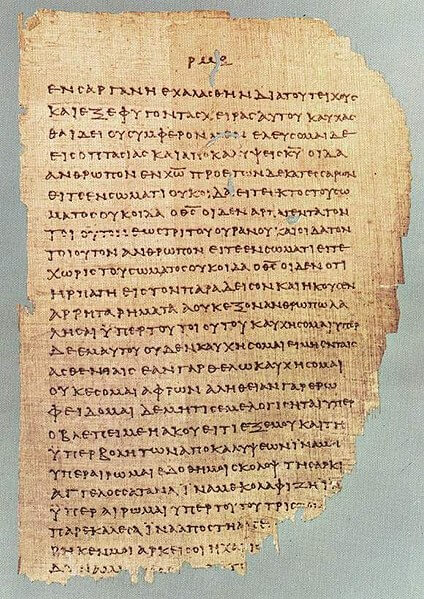 ΡΜΘ
ΕΝΣΑΡΓΑΝΗΕΧΑΛΑΣΘΗΝΔΙΑΤΟΥΤΕΙΧΟΥΣ
ΚΑΙΕΞΕΦΥΓΟΝΤΑΣΧΕΙΡΑΣΑΥΤΟΥΚΑΥΧΑΣ
ΘΑΙΔΕΙΟΥΣΥΜΦΕΡΟΝΜΕΝΕΛΕΥΣΟΜΑΙΔΕ
ΕΙΣΟΠΤΑΣΙΑΣΚΑΙΑΠΟΚΑΛΥΨΕΙΣΚΥ ΟΙΔΑ
ΑΝΘΡΩΠΟΝΕΝΧΩ ΠΡΟΕΤΩΝΔΕΚΑΤΕΣΣΑΡΩΝ
ΕΙΤΕΕΝΣΩΜΑΤΙΟΥΚΟΙΔΑΕΙΤΕΕΚΤΟΣΤΟΥΣΩ
ΜΑΤΟΣΟΥΚΟΙΔΑ ΟΘΣ ΟΙΔΕΝΑΡΠΑΓΕΝΤΑΤΟΝ
ΤΟΙΟΥΤΟΝΕΩΣΤΡΙΤΟΥΟΥΡΑΝΟΥΚΑΙΟΙΔΑΤΟΝ
ΤΟΙΟΥΤΟΝΑΝΘΡΩΠΟΝΕΙΤΕΕΝΣΩΜΑΤΙΕΙΤΕ
ΧΩΡΙΣΤΟΥΣΩΜΑΤΟΣΟΥΚΟΙΔΑ ΟΘΣ ΟΙΔΕΝΟΤΙ
ΗΡΠΑΓΗΕΙΣΤΟΝΠΑΡΑΔΕΙΣΟΝΚΑΙΗΚΟΥΣΕΝ
ΑΡΡΗΤΑΡΗΜΑΤΑΑΟΥΚΕΞΟΝΑΝΘΡΩΠΩΛΑ
ΛΗΣΑΙΥΠΕΡΤΟΥΤΟΙΟΥΤΟΥΚΑΥΧΗΣΟΜΑΙΥΠΕΡ
ΔΕΕΜΑΥΤΟΥΟΥΔΕΝΚΑΥΧΗΣΟΜΑΙΕΙΜΗΕΝΤΑΙΣ
ΑΣΘΕΝΕΙΑΙΣ ΕΑΝΓΑΡΘΕΛΩΚΑΥΧΗΣΟΜΑΙ
ΟΥΚΕΣΟΜΑΙΑΦΡΩΝΑΛΗΘΕΙΑΝΓΑΡΕΡΩ
ΦΕΙΔΟΜΑΙΔΕΜΗΤΙΣΕΜΕΛΟΓΙΣΗΤΑΙΥΠΕΡ
ΟΒΛΕΠΕΙΜΕΗΑΚΟΥΕΙΤΙΕΞΕΜΟΥΚΑΙΤΗ
ΥΠΕΡΒΟΛΗΤΩΝΑΠΟΚΑΛΥΨΕΩΝΙΝΑΜΗ
ΥΠΕΡΑΙΡΩΜΑΙΕΔΟΘΗΜΟΙΣΚΟΛΟΨΤΗΣΑΡΚΙ
ΑΓΓΕΛΟΣΣΑΤΑΝΑΙΝΑΜΕΚΟΛΑΦΙΖΗΙΝ
ΥΠΕΡΑΙΡΩΜΑΙΥΠΕΡΤΟΥΤΟΥΤΡΙΣ
ΠΑΡΕΚΑΛΕΣΑΙΝΑΑΠΟΣΤΗ
ΡΗΚΕΝΜΟΙΑΡΚΕΙΣΟΙΗΧΑ